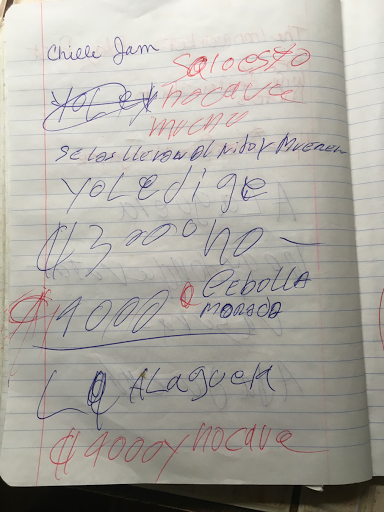 Chilli Jam
Solo esto
Yo le y no cave
mucho
Se las llevan al nido y mueren
Yo le dige
₡3000 no —
₡9000 o Cebolla
morada
La Alaguera
₡9000 y no cave